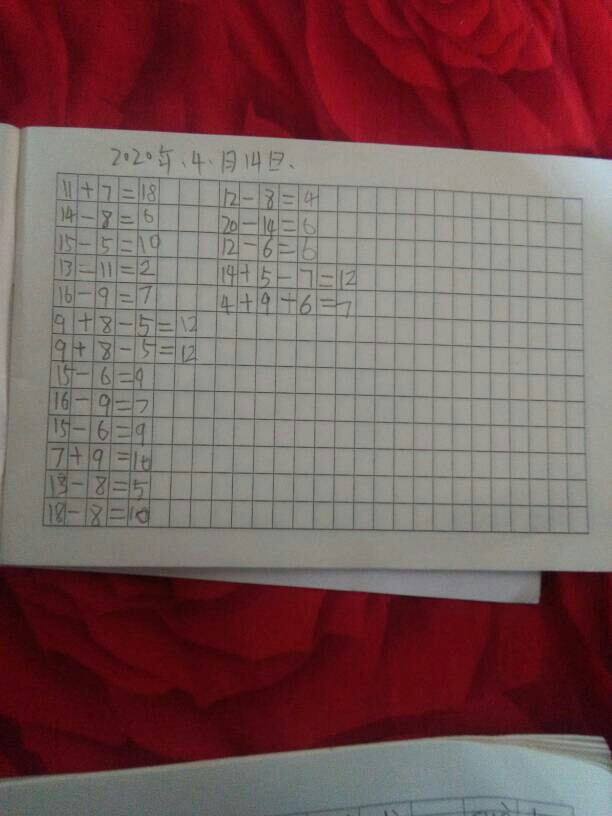 2020年.4.月14日.
11+7=18
14-8=6
15-5=10
13=11=2
16-9=7
9+8-5=12
9+8-5=12
15-6=9
16-9=7
15-6=9
7+9=16
13-8=5
18-8=10
12-8=4
20-14=6
12-6=6
14+5-7=12
4+9+6=7